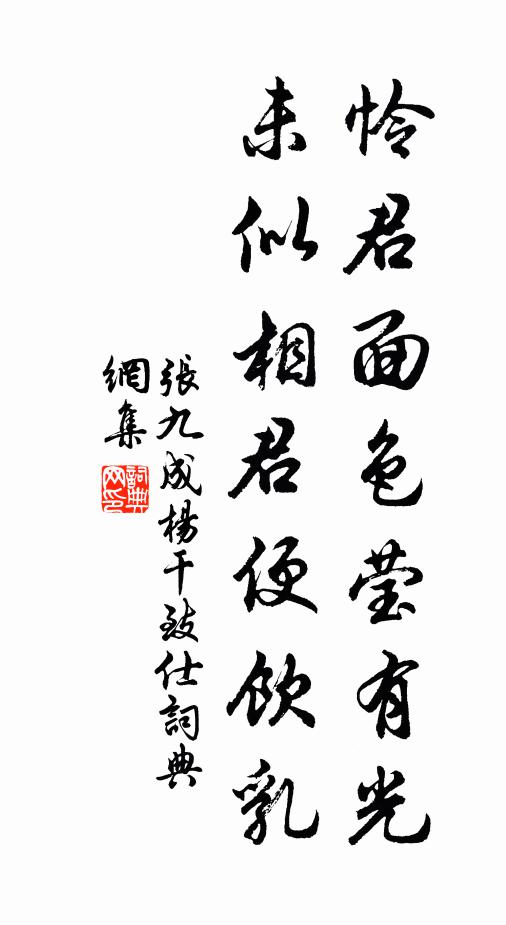 怜君面色莹有光
未似相君便飲乳
張九成楊干致仕詞典
網集
詞典
网